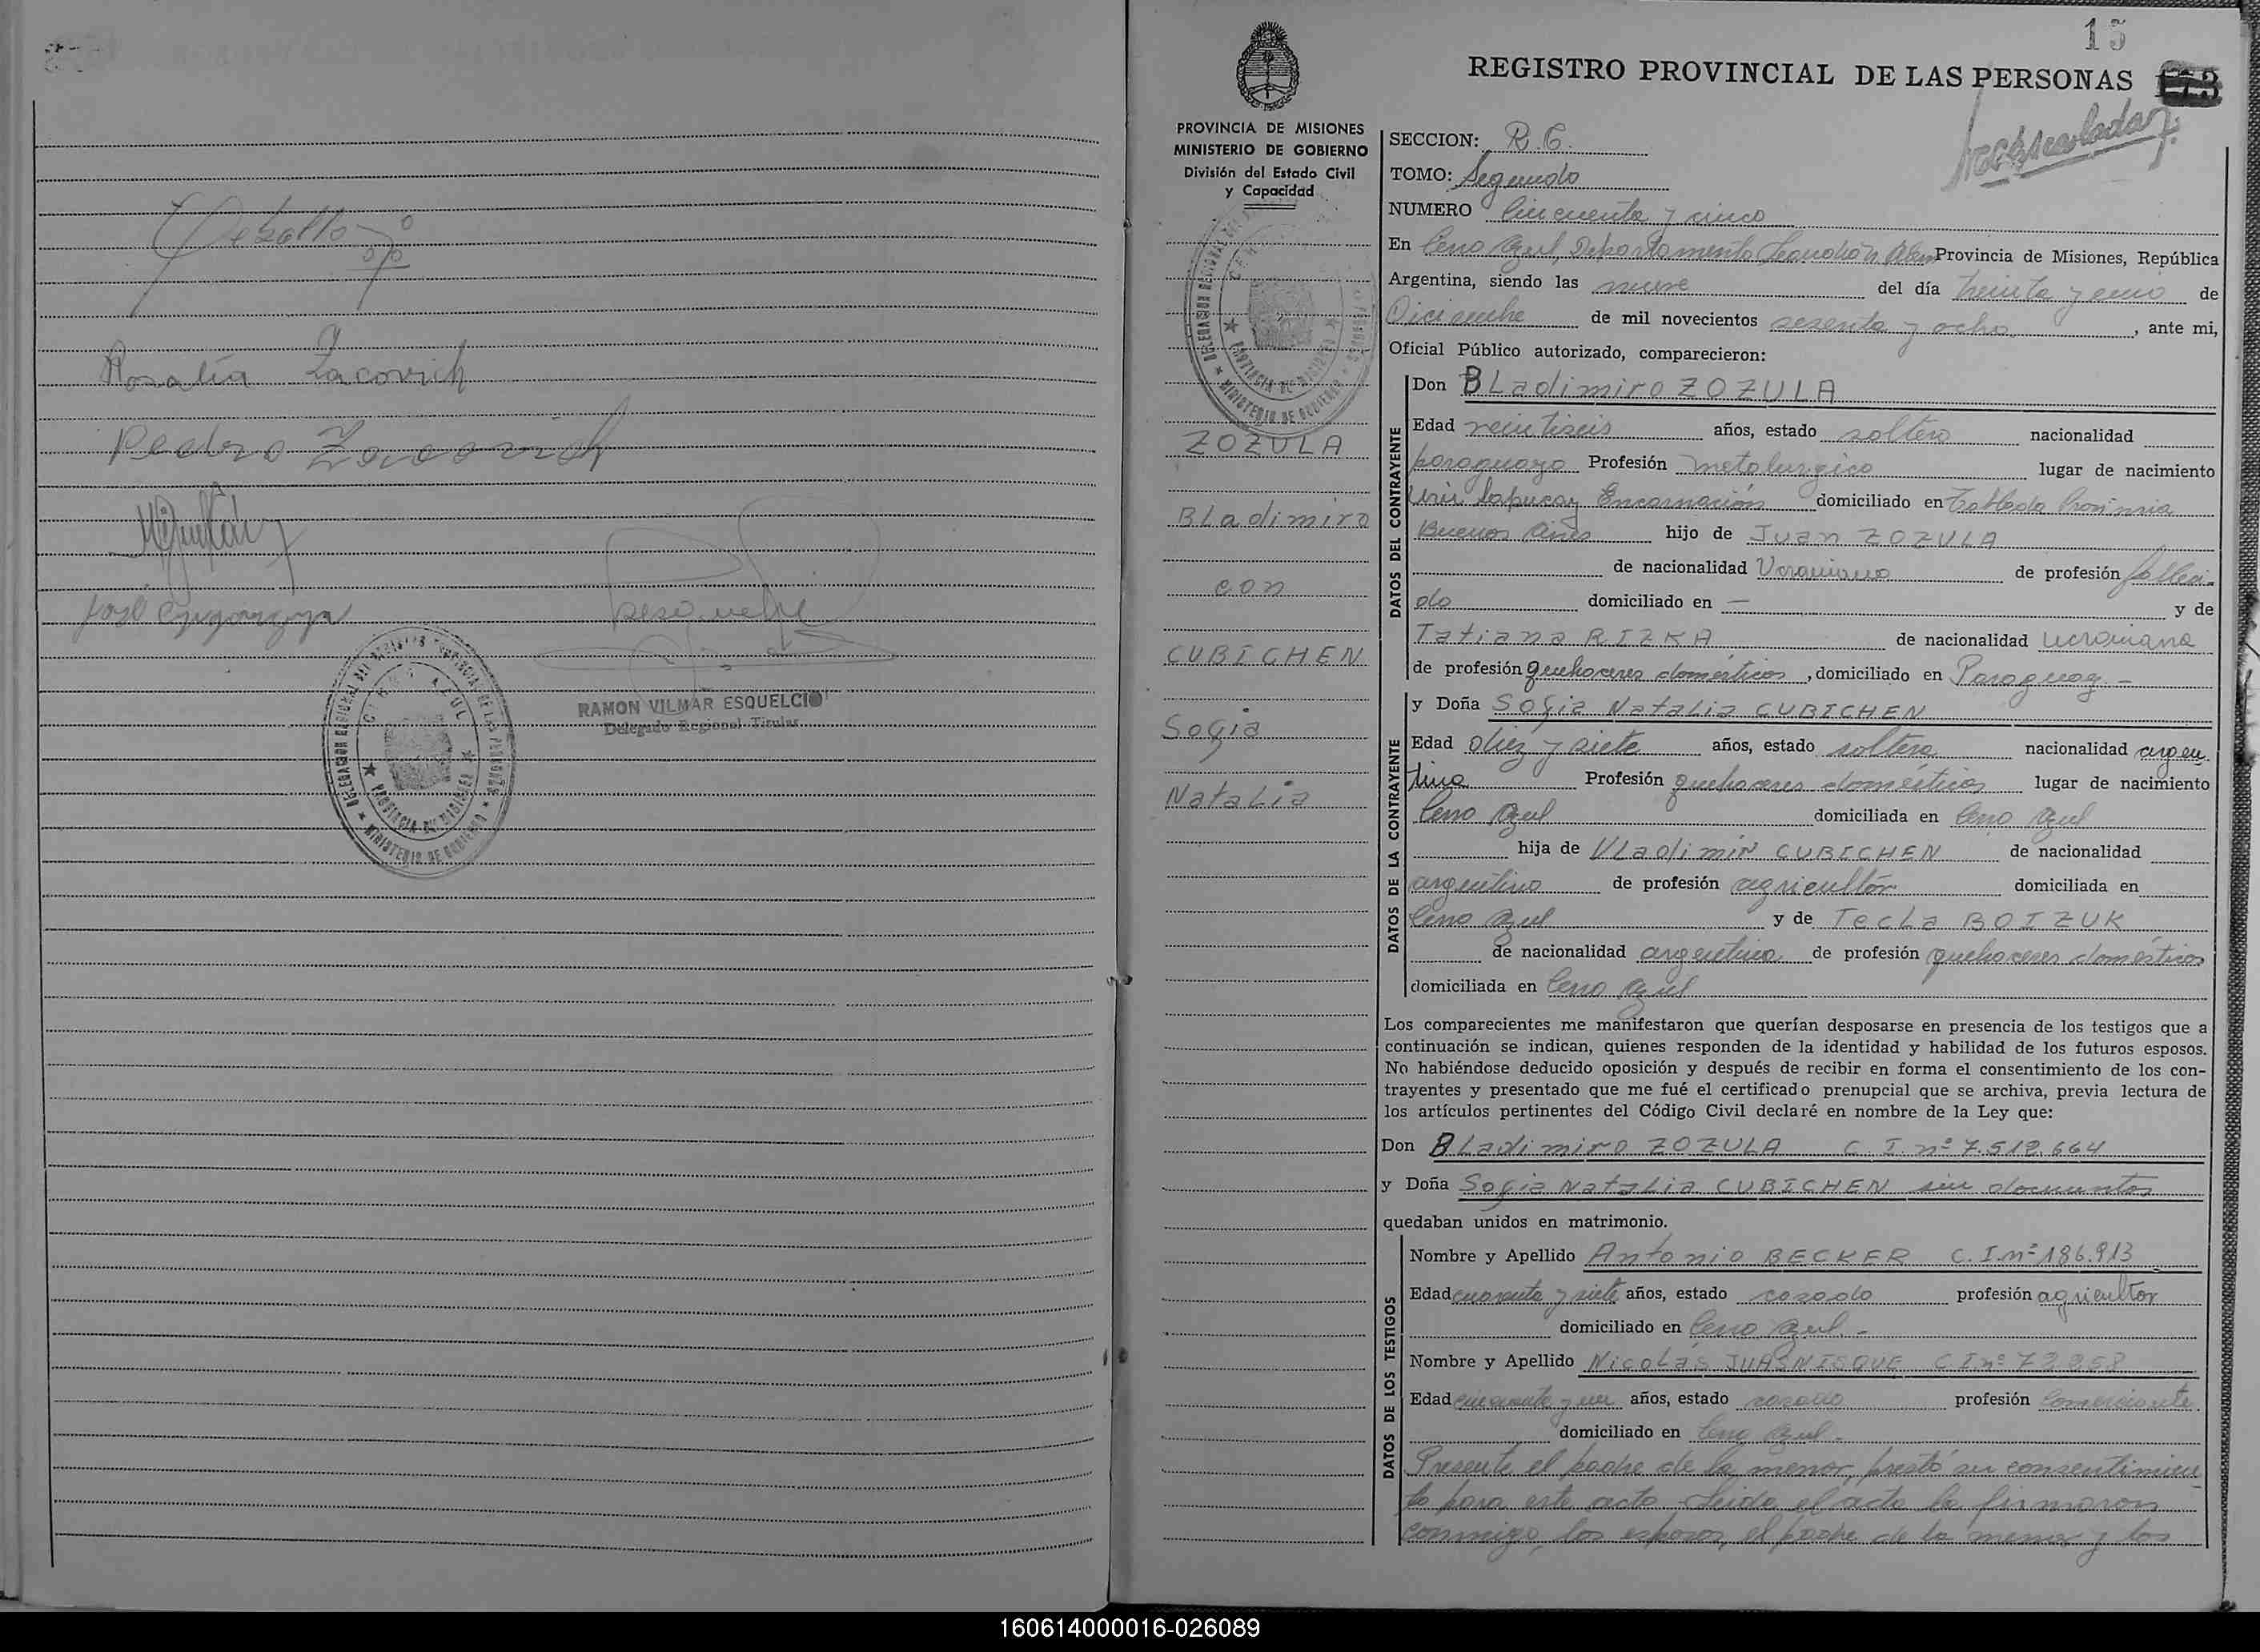 Rosalía Zacovich
Pedro Zacovich
RAMON VILMAR ESQUELCIO
Delegado Regional Titular
CERRO AZUL
PROVINCIA DE MISIONES
MINISTERIO DE GOBIERNO
15
REGISTRO PROVINCIAL DE LAS PERSONAS
PROVINCIA DE MISIONES
MINISTERIO DE GOBIERNO
División del Estado Civil
y Capacidad
ZOZULA
BLadimiro
con
CUBICHEN
Sofia
NataLia
SECCION: R.C.
TOMO: Segundo
NUMERO Cincuenta y cinco
En Cerro Azul, Departamento Leandro N. Alem Provincia de Misiones, República
Argentina, siendo las nueve del día treinta y uno de
Diciembre de mil novecientos sesenta y ocho, ante mi,
Oficial Público autorizado, comparecieron:
DATOS DEL CONTRAYENTE
Don BLadimiro ZOZULA
Edad veintiseis años, estado soltero nacionalidad
paraguayo Profesión metalurgico lugar de nacimiento
Encarnación domiciliado en Tablada Provincia
Buenos Aires hijo de Juan ZOZULA
de nacionalidad Ucraniano de profesión falleci-
do domiciliado en — y de
Tatiana RIZKA de nacionalidad Ucraniana
de profesión quehaceres domésticos, domiciliado en Paraguay.-
DATOS DE LA CONTRAYENTE
y Doña Sofia NataLia CUBICHEN
Edad diez y siete años, estado soltera nacionalidad argen
tina Profesión quehaceres domésticos lugar de nacimiento
Cerro Azul domiciliada en Cerro Azul
hija de VLadimir CUBICHEN de nacionalidad
argentino de profesión agricultor domiciliada en
Cerro Azul y de TecLa BOIZUK
de nacionalidad argentina de profesión quehaceres domésticos
domiciliada en Cerro Azul
Los comparecientes me manifestaron que querían desposarse en presencia de los testigos que a
continuación se indican, quienes responden de la identidad y habilidad de los futuros esposos.
No habiéndose deducido oposición y después de recibir en forma el consentimiento de los con-
trayentes y presentado que me fué el certificado prenupcial que se archiva, previa lectura de
los artículos pertinentes del Código Civil declaré en nombre de la Ley que:
Don BLadimiro ZOZULA C. I. nº 7.512.664
y Doña Sofia NataLia CUBICHEN sin documentos
quedaban unidos en matrimonio.
DATOS DE LOS TESTIGOS
Nombre y Apellido Antonio BECKER C. I. nº 186.913
Edad cuarenta y siete años, estado casado profesión agricultor
domiciliado en Cerro Azul.-
Nombre y Apellido NicoLás JUASNISQUE C I nº
Edad cincuenta y un años, estado casado profesión Comerciante
domiciliado en Cerro Azul.-
Presente el padre de la menor, prestó su consentimien
to para este acto. Leida el acta la firmaron
conmigo, los esposos, el padre de la menor y los
160614000016-026089